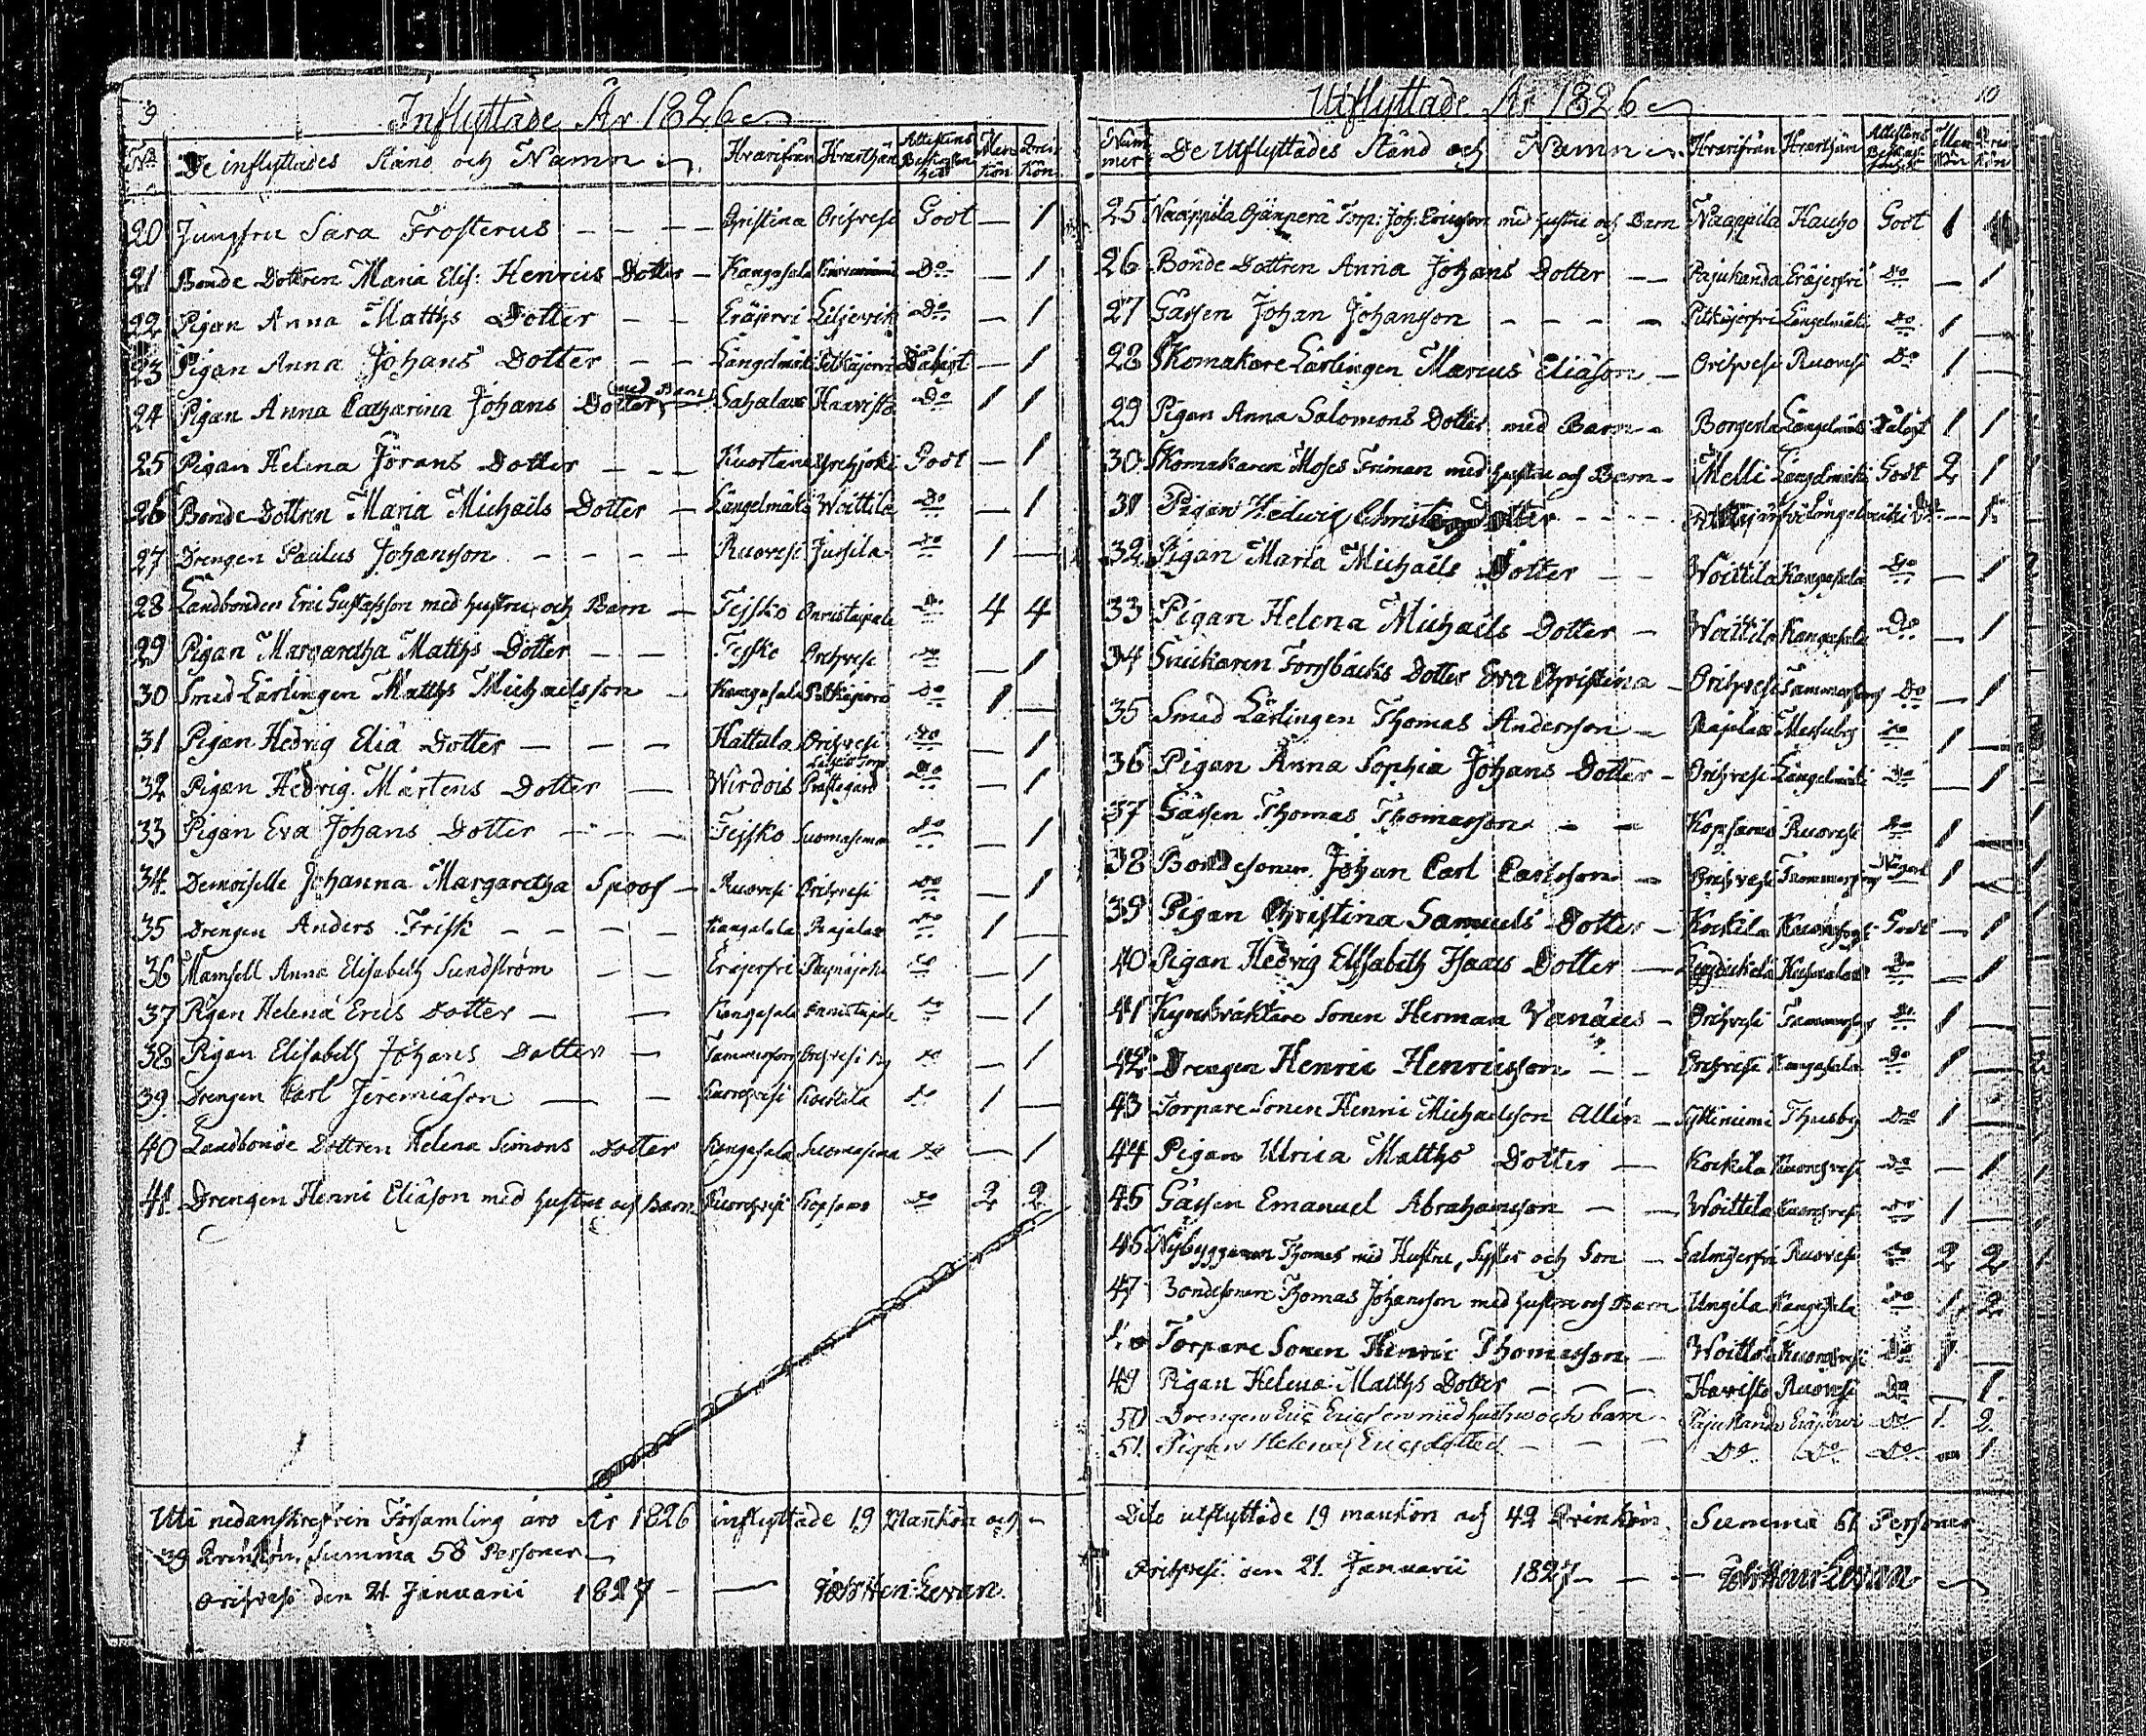 9
Inflyttade År 1826
No De inflyttades Stånd och Namn Hvarifrån Hvarthän Attestens Beskaffenhet Man Kön Qvin Kön
20 Jungfru Sara Frosterus — — — — Christina Orihvesi Godt — 1
21 Bonde Dottren Maria Elis: Henrics Dotter — Kangasala Do — 1
22 Pigan Anna Matths Dotter — — Eräjervi Do — 1
23 Pigan Anna Johans Dotter — — Längelmäki Pitkäjervi — 1
24 Pigan Anna Catharina Johans Dotter med Barn Sahalax Haavisto Do 1 1
25 Pigan Helena Jörans Dotter — — — Kuortane Godt — 1
26 Bonde Dottren Maria Michaels Dotter — Längelmäki Woittila Do — 1
27 Drengen Paulus Johansson — — — — Ruovesi Jussila Do 1 —
28 Landbonden Eric Gustafsson med hustru och Barn — Teisko Onnistaipale Do 4 4
29 Pigan Margaretha Matths Dotter — — Teisko Orihvesi Do — 1
30 Smed Lärlingen Matths Michaelsson — Kangasala Pitkäjervi Do 1 —
31 Pigan Hedvig Eliä Dotter — — — Hattula Orihvesi Do — 1
32 Pigan Hedvig Mårtens Dotter — Wirdois Prästegård Do — 1
33 Pigan Eva Johans Dotter — — — Teisko Suomasema Do — 1
34 Demoiselle Johanna Margaretha Spoof — Ruovesi Orihvesi Do — 1
35 Drengen Anders Frisk — — — — Kangasala Pajalax Do 1 —
36 Mamsell Anna Elisabeth Sundström — — Eräjerfvi Do — 1
37 Pigan Helena Erics Dotter — — Kangasala Onnistaipale Do — 1
38 Pigan Elisabeth Johans Dotter — Tammerfors Orihvesi By Do — 1
39 Drengen Carl Jeremiäson — — Kuorehvesi Kockila Do 1 —
40 Landbonde Dottren Helena Simons Dotter Kangasala Suomasema Do — 1
41 Drengen Henric Eliäson med hustru och Barn Kuorehvesi Kopsamo Do 2 2
Uti nedanskrefven Församling äro År 1826 inflyttade 19 Mankön och
39 Qvinkön, Summa 58 Personer —
Orihvesi den 21 Januarii 1827 — — Joh: Hen: Levan.
10
Utflyttade År 1826
Num mer De Utflyttades Stånd och Namn Hvarifrån Hvarthän Attestens Beskaffenhet Man Kön Qvin Kön
25 Naappila Torp: Joh: Ericsson med hustru och Barn Naappila Hauho Godt 1
26 Bonde Dottren Anna Johans Dotter — — Pajukanda Eräjerfvi Do — 1
27 Gåssen Johan Johansson — — — — Pitkäjerfvi Längelmäki Do 1 —
28 Skomakare Lärlingen Marcus Eliäson — Orihvesi Ruovesi Do 1 —
29 Pigan Anna Salomons Dotter med Barn — Längelmäki 1 1
30 Skomakaren Moses Friman med hustru och Barn — Melli Längelmäki Godt 2 1
31 Pigan Hedwig Dotter — — — Längelmäki Do — 1
32 Pigan Maria Michaels Dotter — — Woittila Kangasala Do — 1
33 Pigan Helena Michaels Dotter — Woittila Kangasala Do — 1
34 Snickaren Forsbäcks Dotter Eva Christina — Orihvesi Tammerfors Do — 1
35 Smed Lärlingen Thomas Andersson — Pajalax Messuby Do 1 —
36 Pigan Anna Sophia Johans Dotter — Orihvesi Längelmäki Do — 1
37 Gåssen Thomas Thomasson — — Kopsamo Ruovesi Do 1 —
38 Bondesonen Johan Carl Carlsson — Orihvesi Tammerfors 1 —
39 Pigan Christina Samuels Dotter — Kockila Godt — 1
40 Pigan Hedvig Elisabeth Isaacs Dotter — Do — 1
41 Kyrkväktare Sonen Herman Vanäus — Orihvesi Tammerfors Do 1 —
42 Drengen Henric Henricsson — — Orihvesi Kangasala Do 1 —
43 Torpare Sonen Henric Michaelsson Allén — Thusby Do 1 —
44 Pigan Ulrica Matths Dotter — Kockila Kuorehvesi Do — 1
45 Gåssen Emanuel Abrahamsson — — Woittila Kuorehvesi Do 1 —
46 Nybyggaren Thomas med Hustru, Syster och Son — Ruovesi Do 2 2
47 Bondesonen Thomas Johansson med hustru och Barn Ungila Kangasala Do 1 2
Torpare Sonen Henric Thomasson — Woittila Kuorehvesi Do 1 —
49 Pigan Helena Matths Dotter — — — Havisto Ruovesi Do — 1
50 Drengen Eric Ericsson med hustru och barn — Pajukanda Eräjärvi Do 1 2
51. Pigan Helena Ericsdotter — — — Do Do Do — 1
Dito utflyttade 19 mankön och 42 Qvinkön. Summa 61 Personer
Orihvesi den 21 Januarii 1827 — — — Joh: Henr: Levan